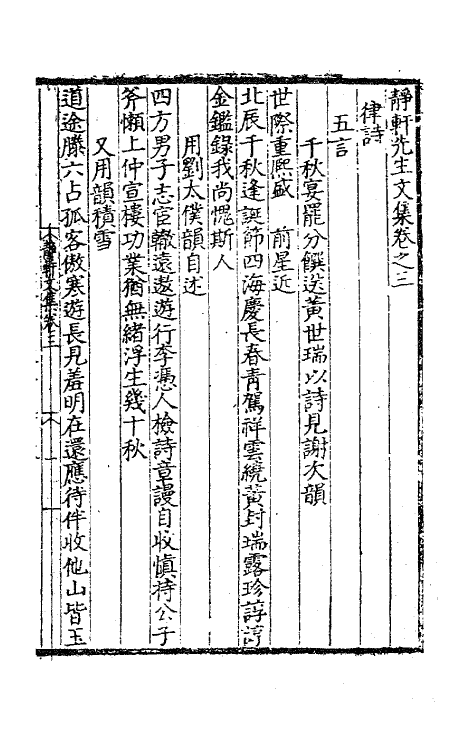 靜軒先生文集卷之三
律詩
五言
千秋宴罷分饌送黃世瑞以詩見謝次韻
世際重熙盛　前星近
北辰千秋逢誕節四海慶長春青駕祥雲繞黃封瑞露珍諄諄
金鑑錄我尚愧斯人
用劉太僕韻自述
四方男子志宦轍遠遨遊行李憑人檢詩章謾自收慎持公子
斧懶上仲宣樓功業猶無緒浮生幾十秋
又用韻積雪
道途滕六占孤客傲寒遊長見羞明在還應待伴收他山皆玉
靜軒文集卷三
一